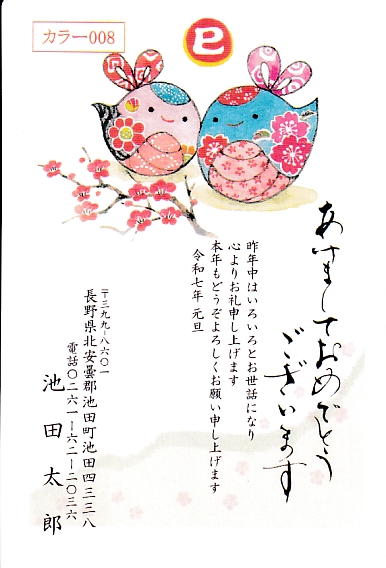 カラー008
巳
あけましておめでとう
ございます
昨年中はいろいろとお世話になり
心よりお礼申し上げます
本年もどうぞよろしくお願い申し上げます
令和七年 元旦
〒三九九-八六〇一
長野県北安曇郡池田町池田四三三八
電話〇二六一-六二-二〇三六
池田太郎